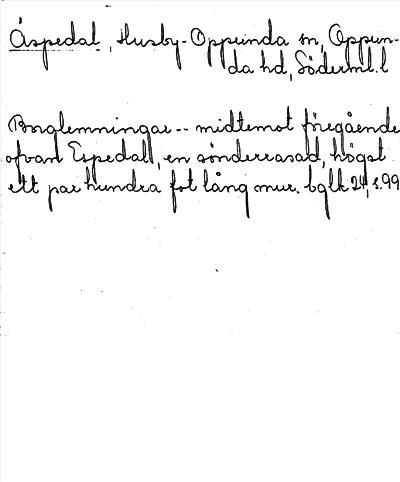 Åspedal, Husby-Oppunda sn, Oppun-
da hd, Söderml. l
Borglemningar -- midtemot föregående
ofvan Espedal, en sönderrasad, högst
ett par hundra fot lång mur. bglk 24, s. 99